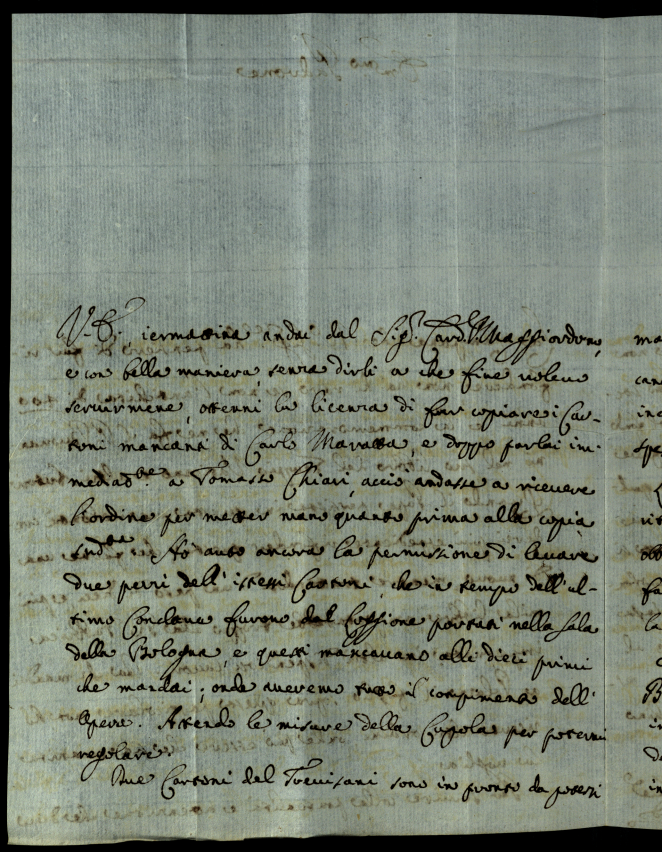 iermattina andai dal Sig.r Card.l Maggiordomo,
e con bella maniera, senza dirli a che fine volevo
servirmene, ottenni la licenza di far copiare i Car-
toni mancanti di Carlo Maratta, e doppo parlai im-
mediat.te a Tomasso Chiari, acciò andasse a ricevere
l'ordine per metter mano quanto prima alla copia
sud.ta. Hò auto ancora la permissione di levare
due pezzi dell'istessi Cartoni, che in tempo dell'ul-
timo Conclave furono dal portati nella sala
della Bologna, e questi mancavano alli dieci primi
che mandai; onde averemo tutto il compimento dell'
Opere. Attendo le misure della Cupola per potermi
regolare.
Due Cartoni del Trevisani sono in pronto da potersi
ma